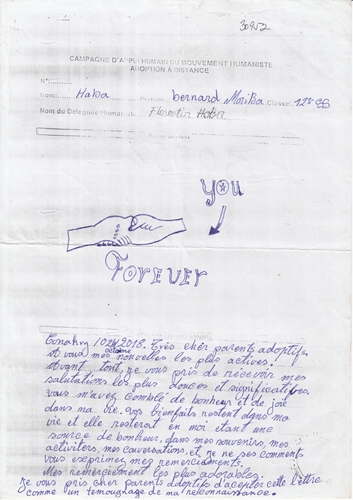 30952
CAMPAGNE D'APPUI HUMAIN DU MOUVEMENT HUMANISTE
ADOPTION A DISTANCE
N°
Nom: Haba Prénom: bernard Moriba Classe: 12e SS
Nom du Délégué Humaniste: Florentin Haba
you
Forever
Conakry 2018. Très cher parents adoptifs.
octobre
A vous mes nouvelles les plus actives.
Avant tout, je vous pris de recevoir mes
salutations les plus douces et significatifves
vous m'avez comblé de bonheur et de joie
dans ma vie, vos bienfaits restent dans ma
vie et elle resterat en moi étant une
source de bonheur, dans mes souvenirs, mes
activiters, mes conversations, et je ne ses comments
vous exprimes mes remerciements.
Mes remerciement les plus adorables.
Je vous pris cher parents adoptifs d'accepter cette lettre
comme un témoignage de ma reconnaissance.